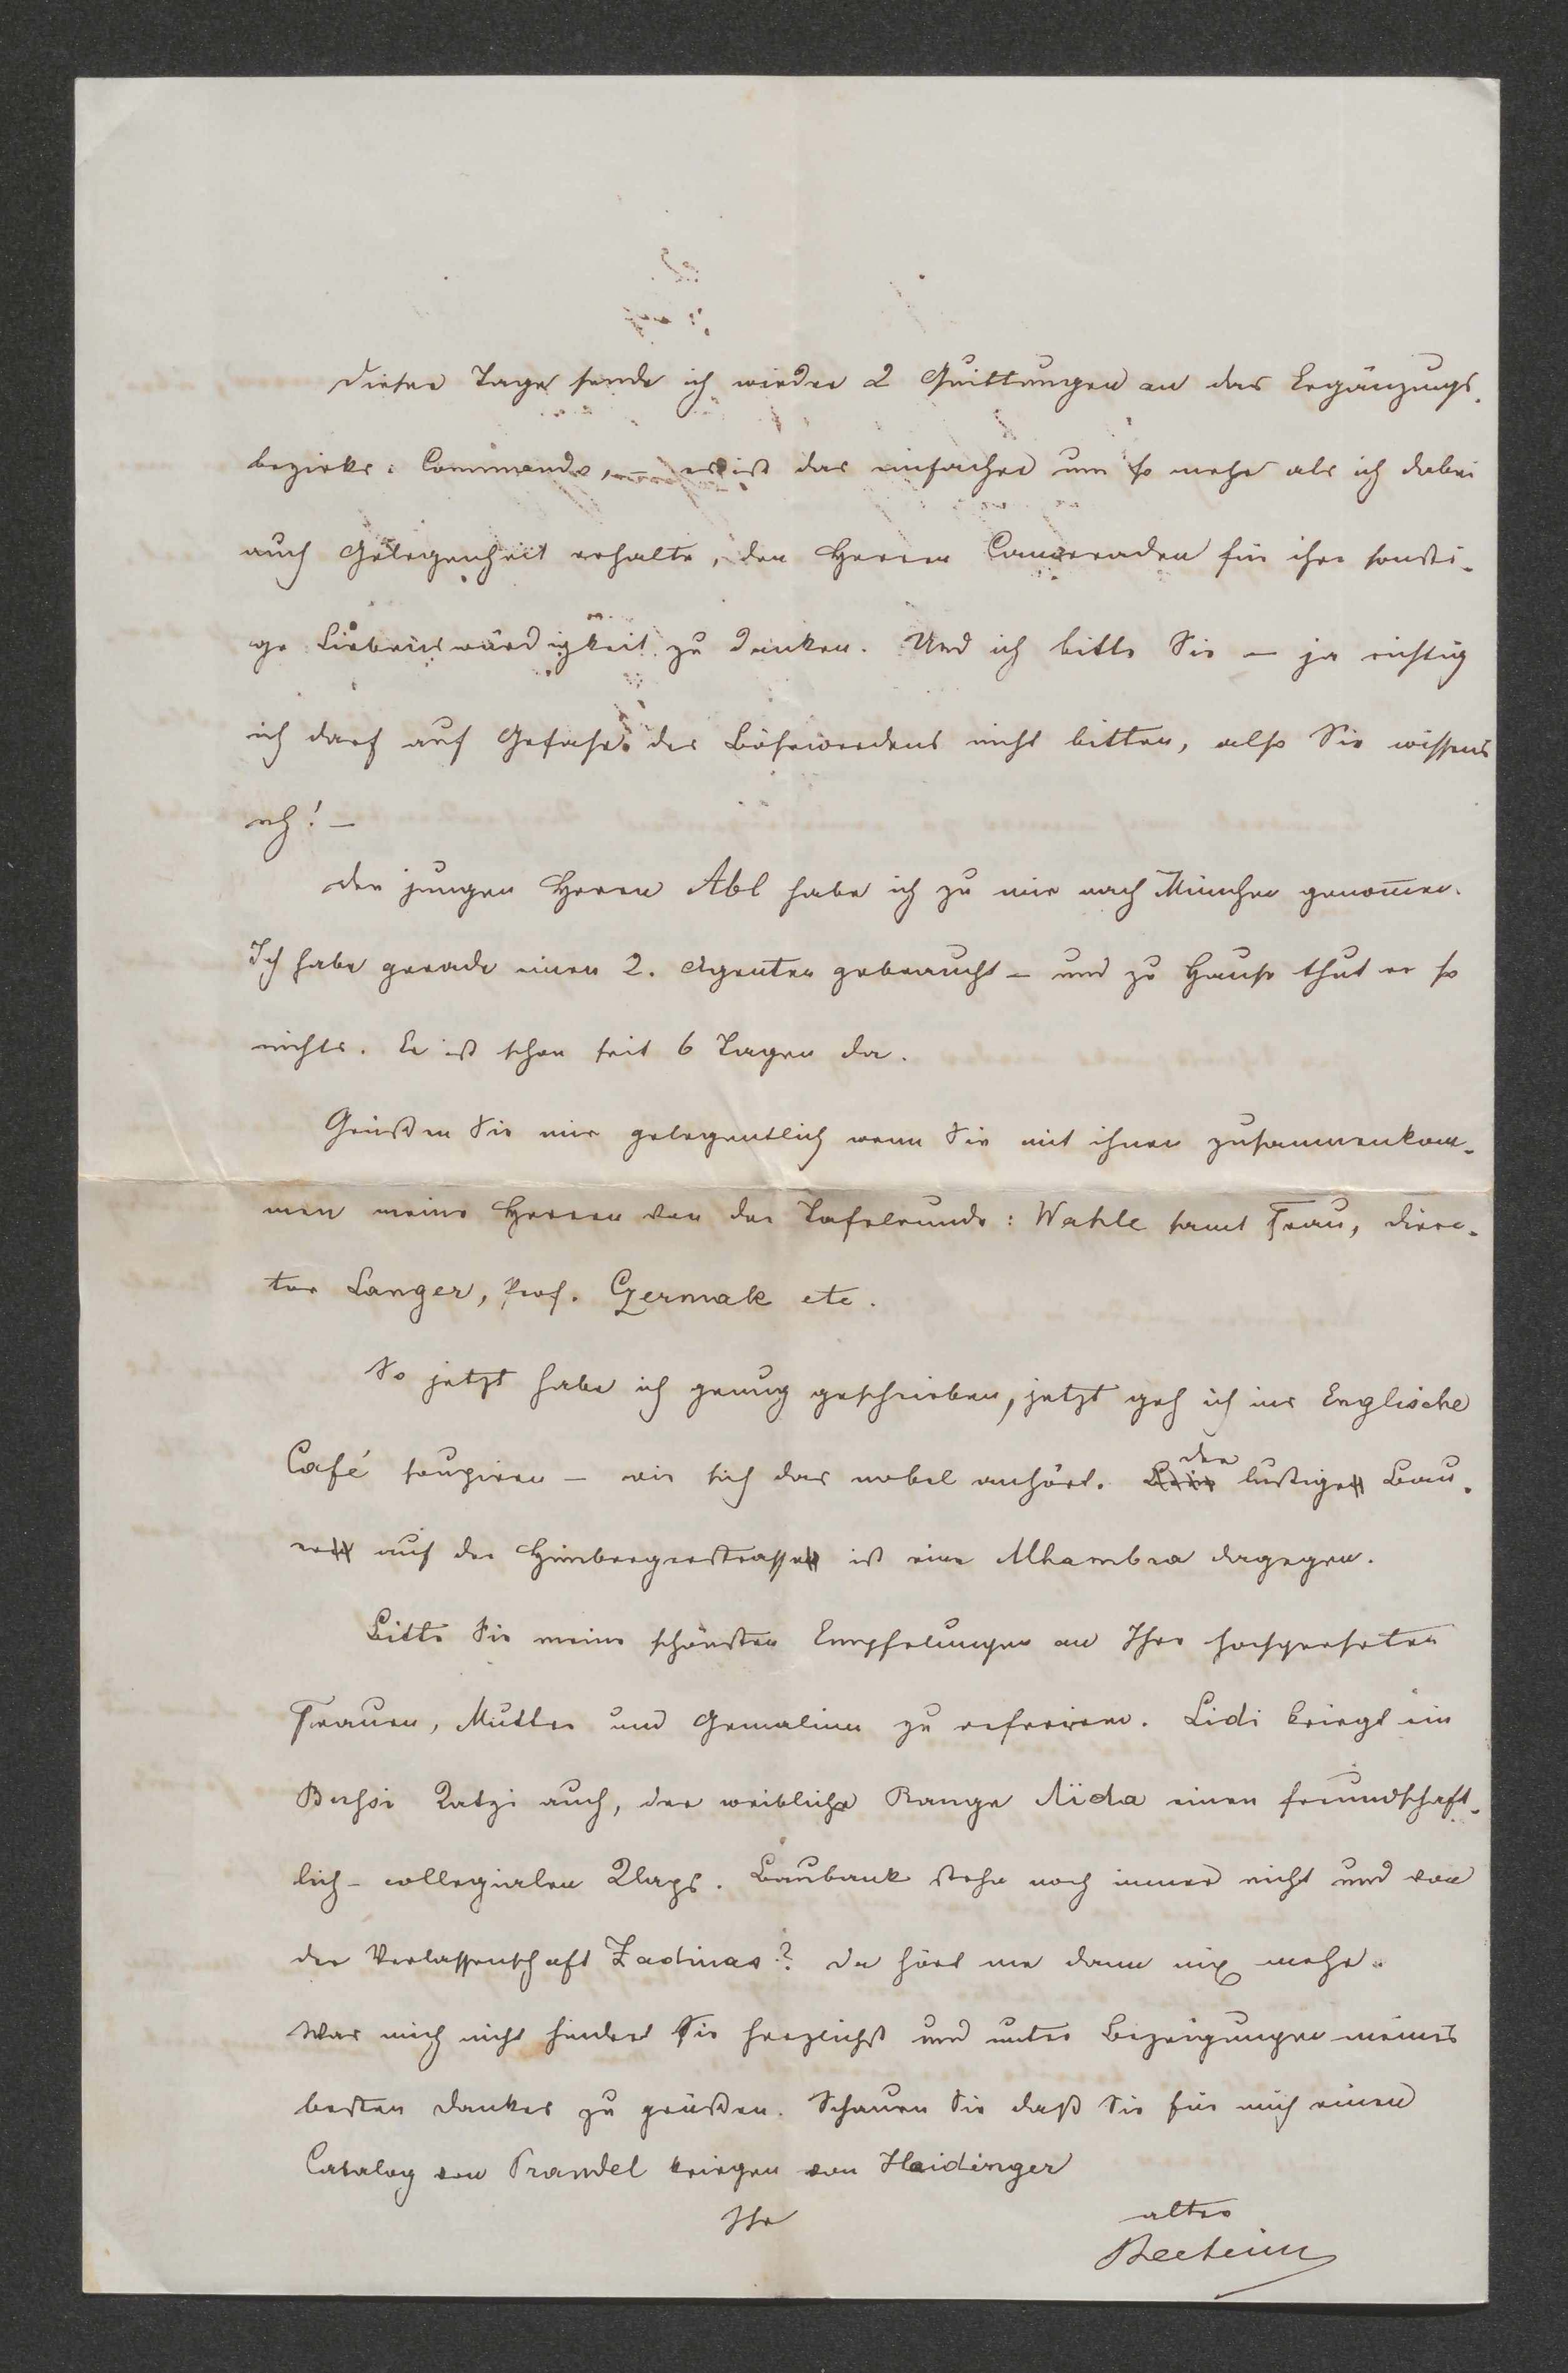 Dieser Tage sende ich wieder 2 Quittungen an das Ergänzungs-
bezirks-Commando, – es ist das einfacher um so mehr als ich dabei
auch Gelegenheit erhalte, den Herren Cameraden für ihre sonsti-
ge Liebenswürdigkeit zu danken. Und ich bitte Sie – ja richtig
ich darf auf Gefahr des Bösewerdens nicht bitten, also Sie wissens
eh! –
Den jungen Herrn Abl habe ich zu mir nach München genomen.
Ich habe gerade einen 2. Agenten gebraucht – und zu Hause thut er so
nichts. Er ist schon seit 6 Tagen da.
Grüßen Sie mir gelegentlich wenn Sie mit ihnen zusammenkom-
men meine Herren von der Tafelrunde: Wahle samt Frau, Direc-
tor Langer, Prof. Czermak etc.
So jetzt habe ich genug geschrieben, jetzt geh ich ins Englische
Café soupiren – wie sich das nobel anhört. der lustige Bau-
er auf der Himbergerstrasse ist eine Alhambra dagegen.
Bitte Sie meine schönsten Empfelungen an Ihre hochgeehrten
Frauen, Mutter und Gemalinn zu referiren. Lidi kriegt ein
Bussi Tatzi auch, der weibliche Range Aïda einen freundschaft-
lich-collegialen Klaps. Baubank stehn noch immer nicht und von
der Verlassenschaft Zadinas? Da hört me dann nix mehr.
Was mich nicht hindert Sie herzlichst und unter Bezeigungen meines
besten Dankes zu grüßen. Schauen Sie daß Sie für mich einen
Catalog von Prandel kriegen von Haidinger
Ihr alter